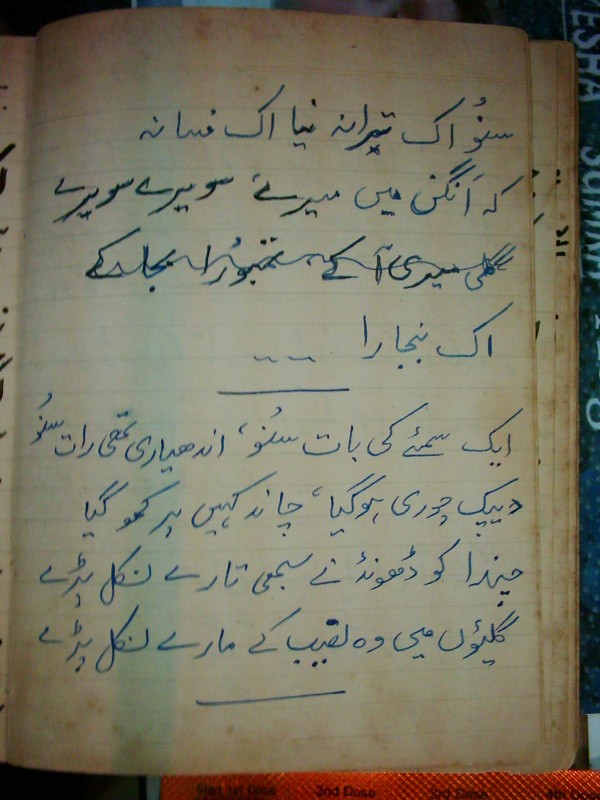 سنُو اک ترانہ نیا اک فسانہ
کہ اَنگن میں میرے، سویرے سویرے
گلی میری آ کے، تمبوُرا بجا کے
اک بنجارا ۔۔ ۔۔
ایک سمئے کی بات سنُو، اندھیاری تھی رات سنُو
دیپک چوری ہوگیا، چاند کہیں پر کھو گیا
چندا کو ڈھونڈنے سبھی تارے نکل پڑے
گلیؤں میں وہ نصیب کے مارے نکل پڑے
YESHA
Start 1st Dose 2nd Dose 3rd Dose 4th Dose